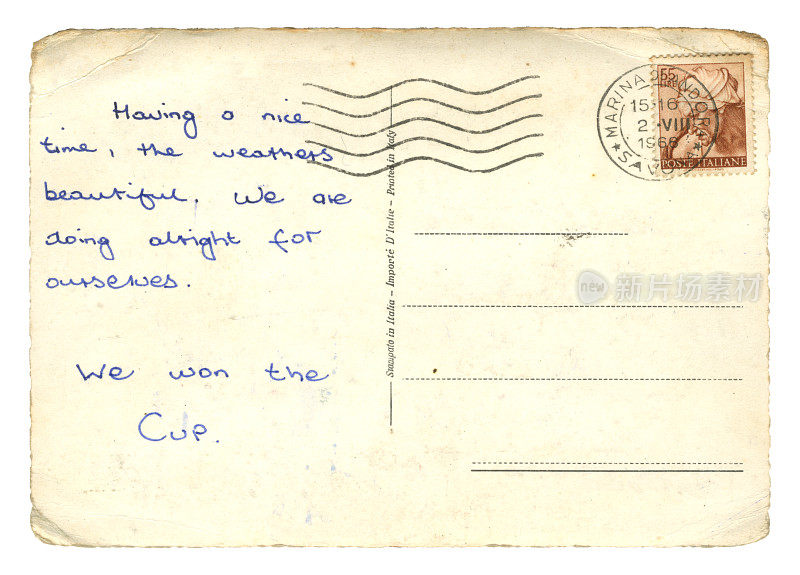 Having a nice
time, the weathers
beautiful. We are
doing alright for
ourselves.
We won the
Cup.
Stampato in Italia – Importé D'Italie – Printed in Italy
MARINA
SAVO
15·16
2 -VIII
1966
LIRE 55
POSTE ITALIANE
new 新片场素材